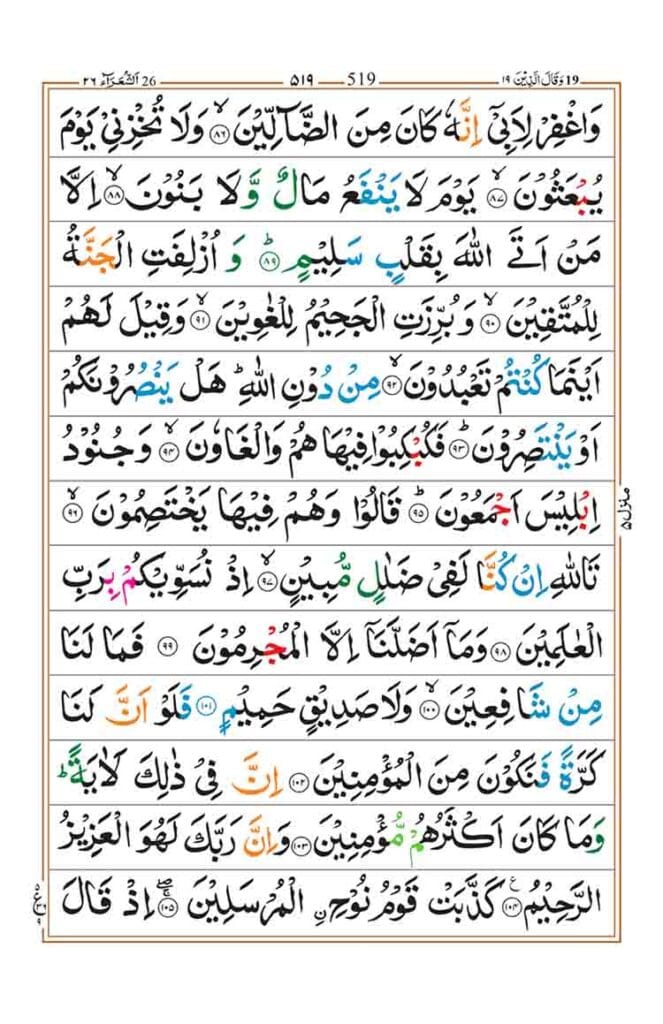 19 وَقَالَ الَّذِیْنَ ١٩ 519 ۵۱۹ 26 اَلشُّعَرَآء ٢٦
وَاغْفِرْ لِاَبِیْۤ اِنَّهٗ كَانَ مِنَ الضَّآلِّیْنَ ۙ﴿۸۶﴾ وَلَا تُخْزِنِیْ یَوْمَ
یُبْعَثُوْنَ ۙ﴿۸۷﴾ یَوْمَ لَا یَنْفَعُ مَالٌ وَّلَا بَنُوْنَ ۙ﴿۸۸﴾ اِلَّا
مَنْ اَتَی اللّٰهَ بِقَلْبٍ سَلِیْمٍ ؕ﴿۸۹﴾ وَ اُزْلِفَتِ الْجَنَّةُ
لِلْمُتَّقِیْنَ ۙ﴿۹۰﴾ وَ بُرِّزَتِ الْجَحِیْمُ لِلْغٰوِیْنَ ۙ﴿۹۱﴾ وَقِیْلَ لَهُمْ
اَیْنَمَا كُنْتُمْ تَعْبُدُوْنَ ۙ﴿۹۲﴾ مِنْ دُوْنِ اللّٰهِ ؕ هَلْ یَنْصُرُوْنَكُمْ
اَوْ یَنْتَصِرُوْنَ ؕ﴿۹۳﴾ فَكُبْكِبُوْا فِیْهَا هُمْ وَالْغَاوٗنَ ۙ﴿۹۴﴾ وَجُنُوْدُ
اِبْلِیْسَ اَجْمَعُوْنَ ؕ﴿۹۵﴾ قَالُوْا وَهُمْ فِیْهَا یَخْتَصِمُوْنَ ۙ﴿۹۶﴾
تَاللّٰهِ اِنْ كُنَّا لَفِیْ ضَلٰلٍ مُّبِیْنٍ ۙ﴿۹۷﴾ اِذْ نُسَوِّیْكُمْ بِرَبِّ
الْعٰلَمِیْنَ ﴿۹۸﴾ وَمَاۤ اَضَلَّنَاۤ اِلَّا الْمُجْرِمُوْنَ ﴿۹۹﴾ فَمَا لَنَا
مِنْ شَافِعِیْنَ ۙ﴿۱۰۰﴾ وَلَا صَدِیْقٍ حَمِیْمٍ ﴿۱۰۱﴾ فَلَوْ اَنَّ لَنَا
كَرَّةً فَنَكُوْنَ مِنَ الْمُؤْمِنِیْنَ ﴿۱۰۲﴾ اِنَّ فِیْ ذٰلِكَ لَاٰیَةً ؕ
وَمَا كَانَ اَكْثَرُهُمْ مُّؤْمِنِیْنَ ﴿۱۰۳﴾ وَاِنَّ رَبَّكَ لَهُوَ الْعَزِیْزُ
الرَّحِیْمُ ﴿۱۰۴﴾ؑ كَذَّبَتْ قَوْمُ نُوْحِ ِ۟الْمُرْسَلِیْنَ ۚۖ﴿۱۰۵﴾ اِذْ قَالَ
منزل ۵